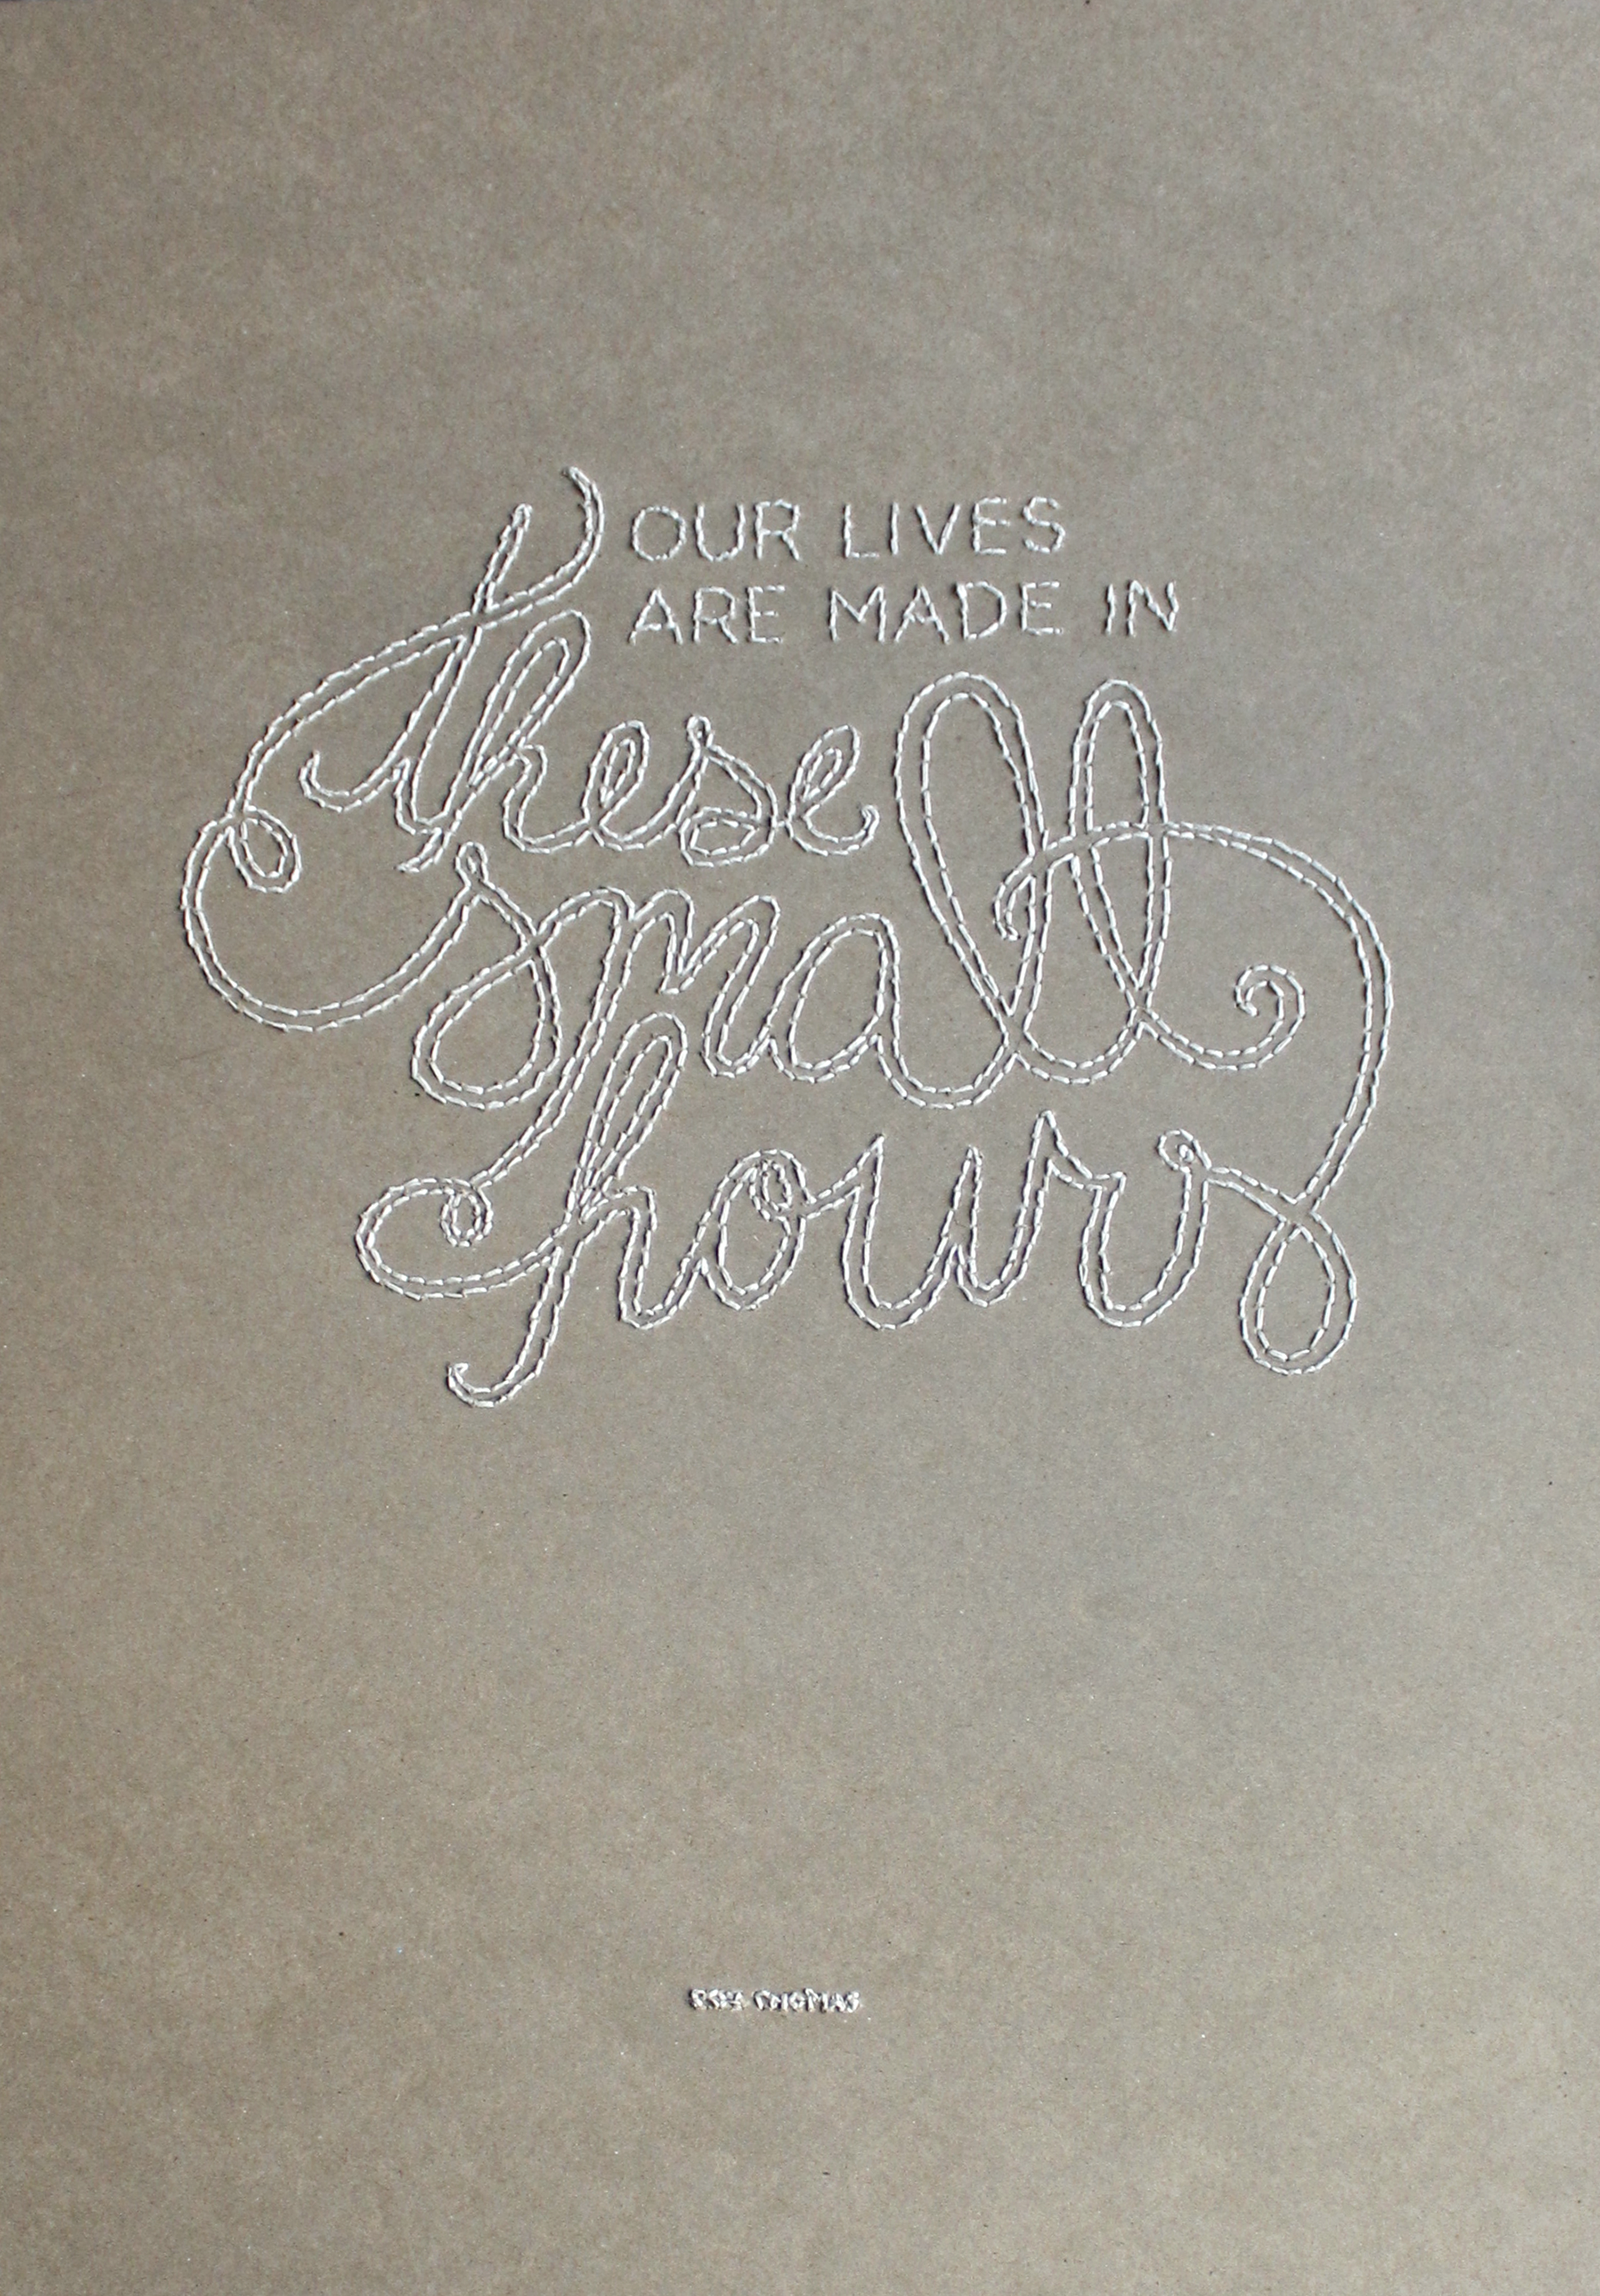 OUR LIVES
ARE MADE IN
these
small
hours
ROB THOMAS